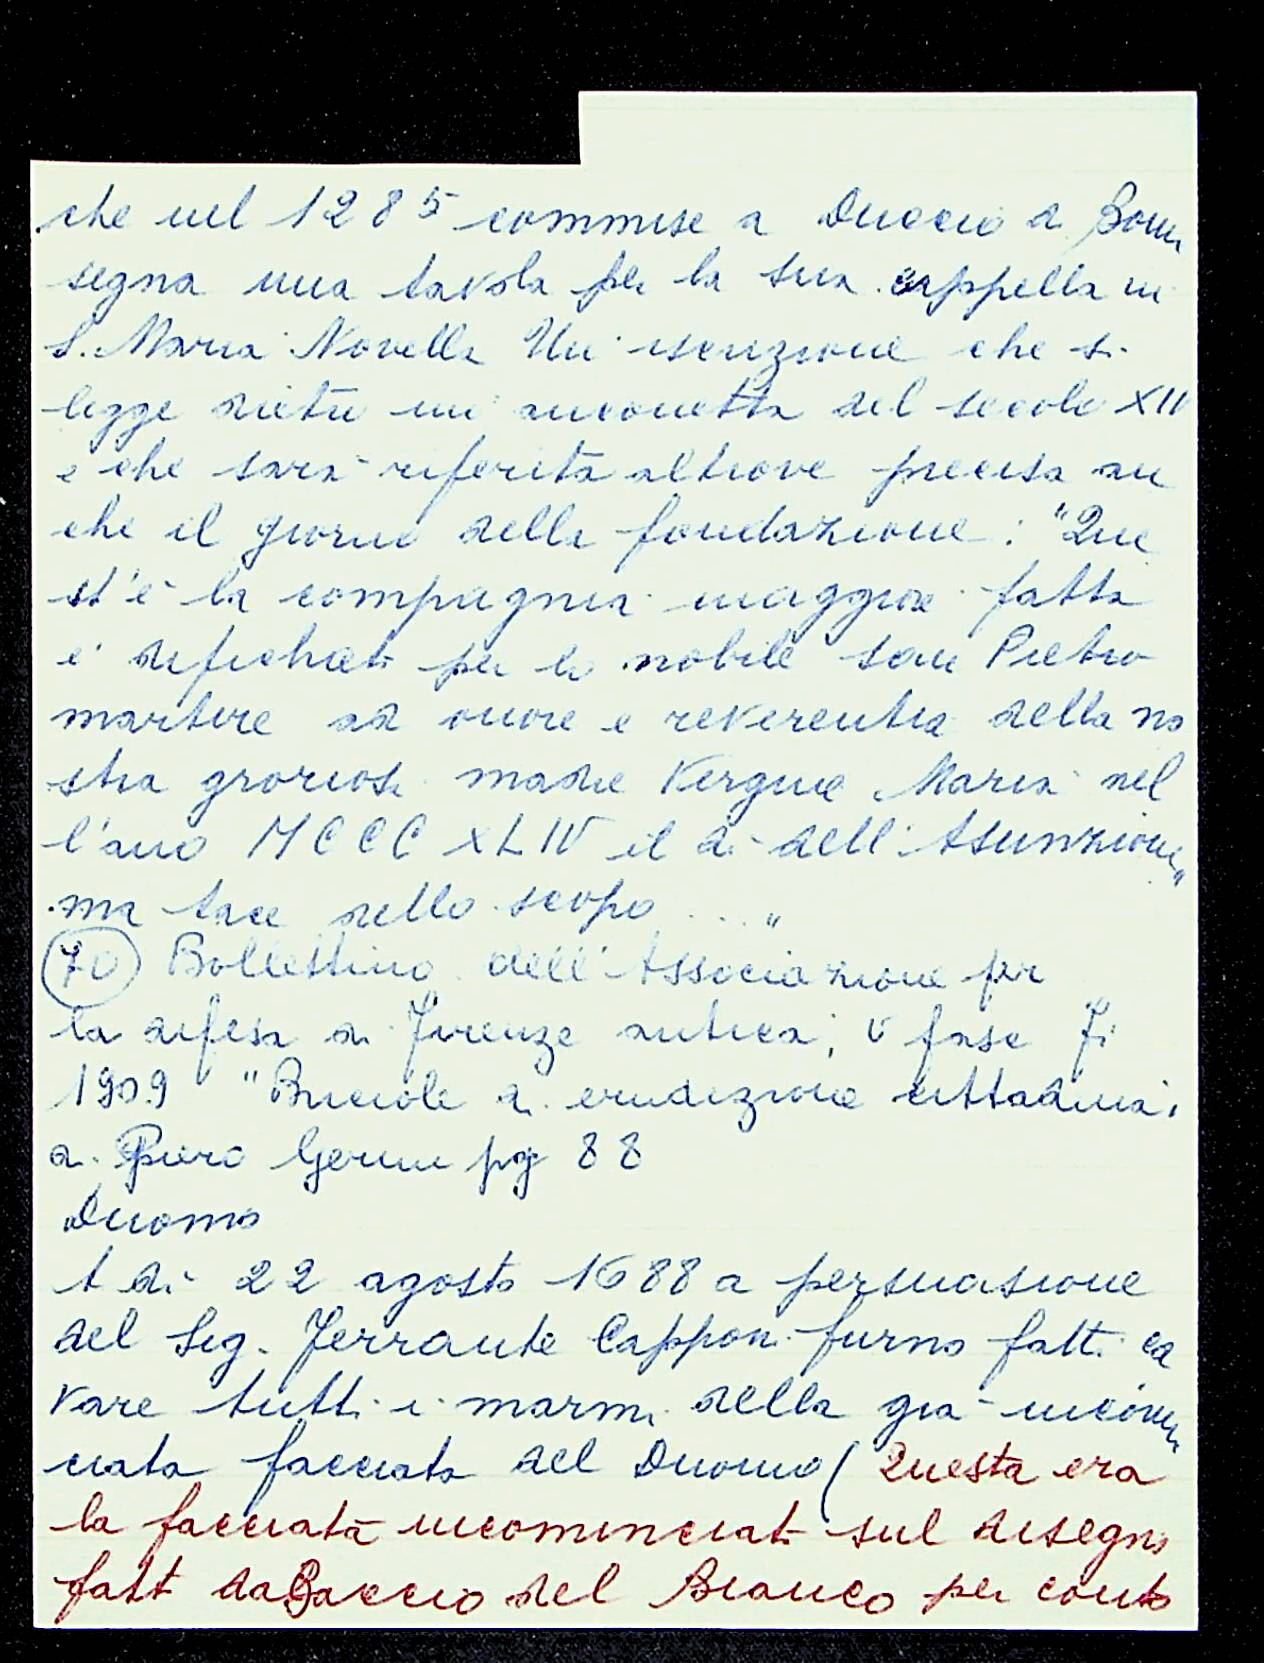 che nel 1285 commise a Duccio di Bonin
segna una tavola per la sua cappella in
S. Maria Novella Un' iscrizione che si
legge dietro un' anconetta del secolo XIV
e che sarà riferita altrove precisa an
che il giorno della fondazione: "Que
st'è la compagnia maggiore fatta
e' difichata per lo nobile san Pietro
martire ad onore e reverentia della no
stra groriosa madre Vergine Maria nel
l'ano MCCCXLIV il dì dell'Asunzione"
ma tace dello scopo ... "
70 Bollettino dell'Associazione per
la difesa di Firenze antica; V fasc 7i
1909 "Briciole di erudizione cittadina;
di Piero Gerini pg 88
Duomo
A dì 22 agosto 1688 a persuasione
del Sig. Ferrante Capponi furno fatti ca
vare tutti i marmi della già incomin
ciata facciata del Duomo (Questa era
la facciata incominciata sul disegno
fatto da Baccio del Bianco per conto